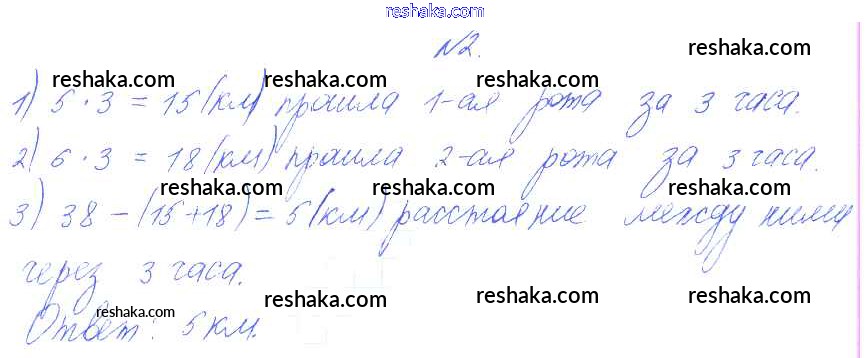 reshaka.com
№2. reshaka.com
reshaka.com reshaka.com reshaka.com
1) 5 · 3 = 15 (км) прошла 1-ая рота за 3 часа.
reshaka.com reshaka.com reshaka.com
2) 6 · 3 = 18 (км) прошла 2-ая рота за 3 часа.
reshaka.com reshaka.com reshaka.com
3) 38 - (15+18) = 5 (км) расстояние между ними
через 3 часа.
reshaka.com reshaka.com reshaka.com
reshaka.com
Ответ: 5 км.